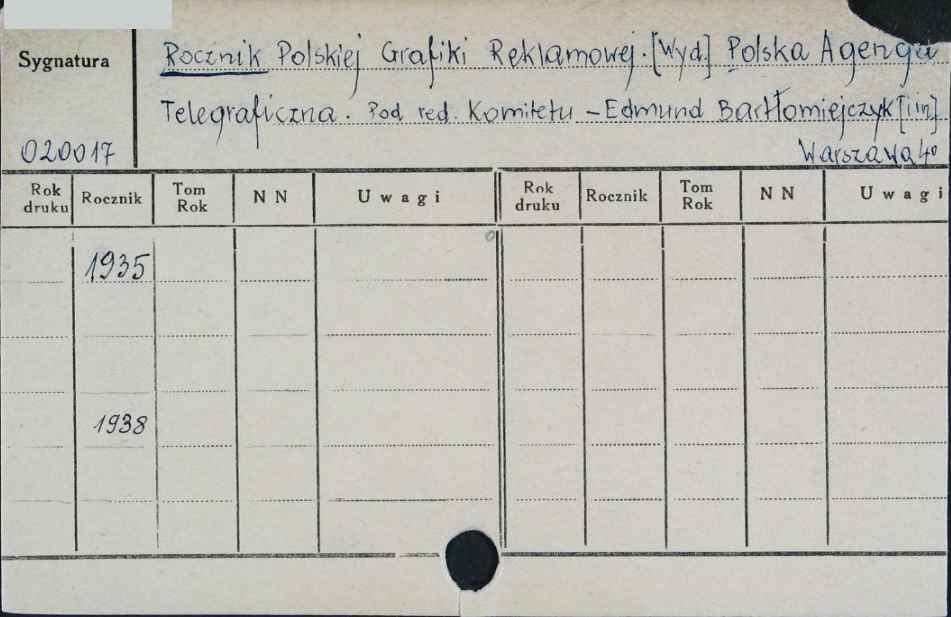 Sygnatura
Rocznik Polskiej Grafiki Reklamowej. [Wyd] Polska Agencja
Telegraficzna. Pod red. Komitetu – Edmund Bartłomiejczyk [i in]
020017
Warszawa 4°
Rok druku Rocznik Tom Rok NN Uwagi Rok druku Rocznik Tom Rok NN Uwagi
1935
1938